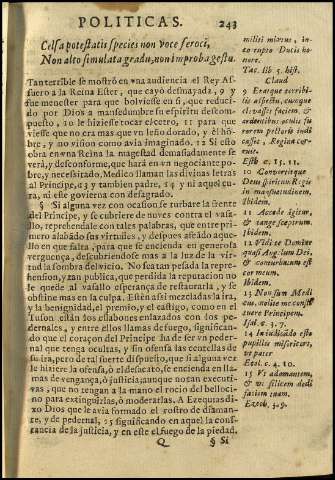 POLITICAS. 243
Celsa potestatis species non voce feroci,
Non alto simulata gradu, non improba gestu.
Tan terrible se mostrò en vna audiencia el Rey As-
suero a la Reina Ester, que cayò desmayada, 9 y
fue menester para que bolviesse en si, que reduci-
do por Dios a mansedumbre su espiritu descom-
puesto, 10 le hiziesse tocar el cetro, 11 para que
viesse que no era mas que vn leño dorado, y èl hõ-
bre, y no vision como avia imaginado. 12 Si esto
obra en vna Reina la magestad demasiadamente se
vera, y desconforme, que harà en vn negociante po-
bre, y necessitado, Medico llaman las divinas letras
al Principe, 13 y tambien padre, 14 y ni aquel cu-
ra, ni este govierna con desagrado.
§ Si alguna vez con ocasion se turbare la frente
del Principe, y se cubriere de nuves contra el vasa-
llo, reprehendale con tales palabras, que entre pri-
mero alabando sus virtudes, y despues afeado aque-
llo en que falta, para que se encienda en generosa
verguença, descubriendose mas a la luz de la vir-
tud la sombra del vicio. No sea tan pesada la repre-
hension, y tan publica, que perdida la reputaciõ no
le quede al vasallo esperança de restaurarla, y se
obstine mas en la culpa. Esten assi mezcladas la ira,
y la benignidad, el premio, y el castigo, como en el
Tuson estàn los eslabones enlazados con los pe-
dernales, y entre ellos llamas de fuego, significan-
do que el coraçon del Principe ha de ser vn peder-
nal que tenga ocultas, y sin ofensa las centellas de
su ira, pero de tal suerte dispuesto, que si alguna vez
le hiriere la ofensa, ò el desacato, se encienda en lla-
mas de vengança, ò justicia, aunque no tan executi-
vas, que no tengan a la mano el rocio del belloci-
no para extinguirlas, ò moderarlas. A Ezequas di-
xo Dios que le avia formado el rostro de diaman-
te, y de pedernal, 15 significando en aquel la cons-
tancia de la justicia, y en este el fuego de la piedad.
Q § Si
militis miatus, in-
to rupto Ducis ho-
nore.
Tac. lib. 5. hist.
Claud
9 Erat que terribi-
lis aspectu, cumque
elevasset faciem, &
ardentibus oculis fu-
rorem pectoris indi-
casset, Regina cor-
ruit.
Esth c. 15. 11.
10 Convertitque
Deus spiritum Regis
in mansuetudinem,
Ibidem.
11 Accede igitur,
& tange sceptrum.
Ibidem.
12 Vidi te Domine
quasi Angelum Dei,
& conturbatum est
cor meum.
Ibidem.
13 Non sum Medi-
cus, nolite me consti-
tuere Principem.
Isai. c. 3. 7.
14 In iudicando esto
pupillis misericors,
vt pater
Ecci. c. 4. 10.
15 Vt adamantem,
& vt silicem dedi
faciem tuam.
Ezech. 3. 9.